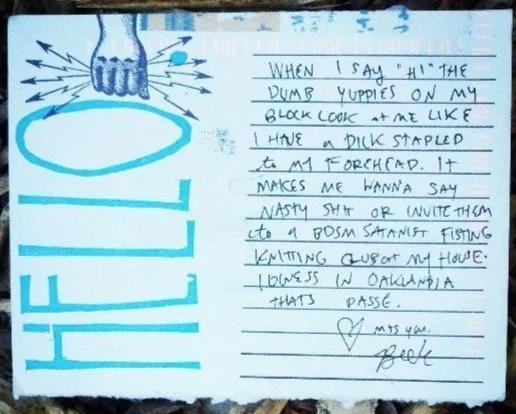 HELLO
WHEN I SAY "HI" THE
DUMB YUPPIES ON MY
BLOCK LOOK at ME LIKE
I HAVE a DICK STAPLED
to MY FOREHEAD. IT
MAKES ME WANNA SAY
NASTY SHIT OR INVITE THEM
to a BDSM SATANIST FISTING
KNITTING CLUB at MY HOUSE.
I GUESS IN OAKLANDIA
THATS PASSE.
♡ MISS YOU.